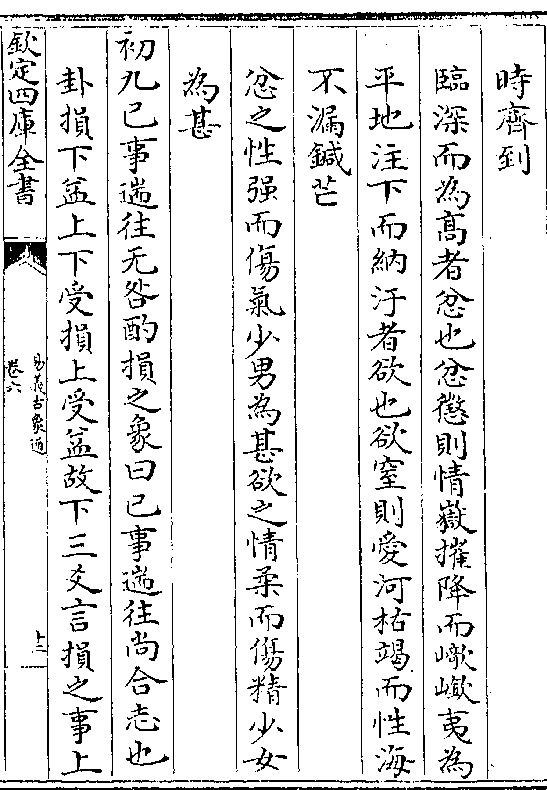 時齊到
臨深而為髙者忿也忿懲則情嶽摧降而嶔巇夷為
平地注下而納汙者欲也欲窒則愛河枯竭而性海
不漏鍼芒
忿之性强而傷氣少男為甚欲之情柔而傷精少女
為甚
初九已事遄往无咎酌損之象曰已事遄往尚合志也
卦損下益上下受損上受益故下三爻言損之事上
欽定四庫全書
易義古象通
卷六
十二